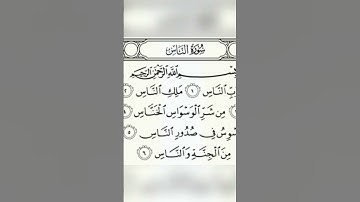 سُورَةُ النَّاسِ
بِسْمِ اللَّهِ الرَّحْمَٰنِ الرَّحِيمِ
النَّاسِ ١ مَلِكِ النَّاسِ ٢
مِن شَرِّ الْوَسْوَاسِ الْخَنَّاسِ ٤
فِي صُدُورِ النَّاسِ ٥
مِنَ الْجِنَّةِ وَالنَّاسِ ٦